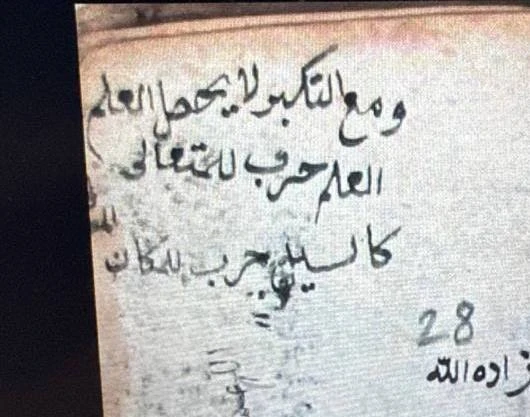 ومع التكبر لا يحصل العلم
العلم حرب للمتعالى
كالسيل حرب للمكان
28
زاده الله